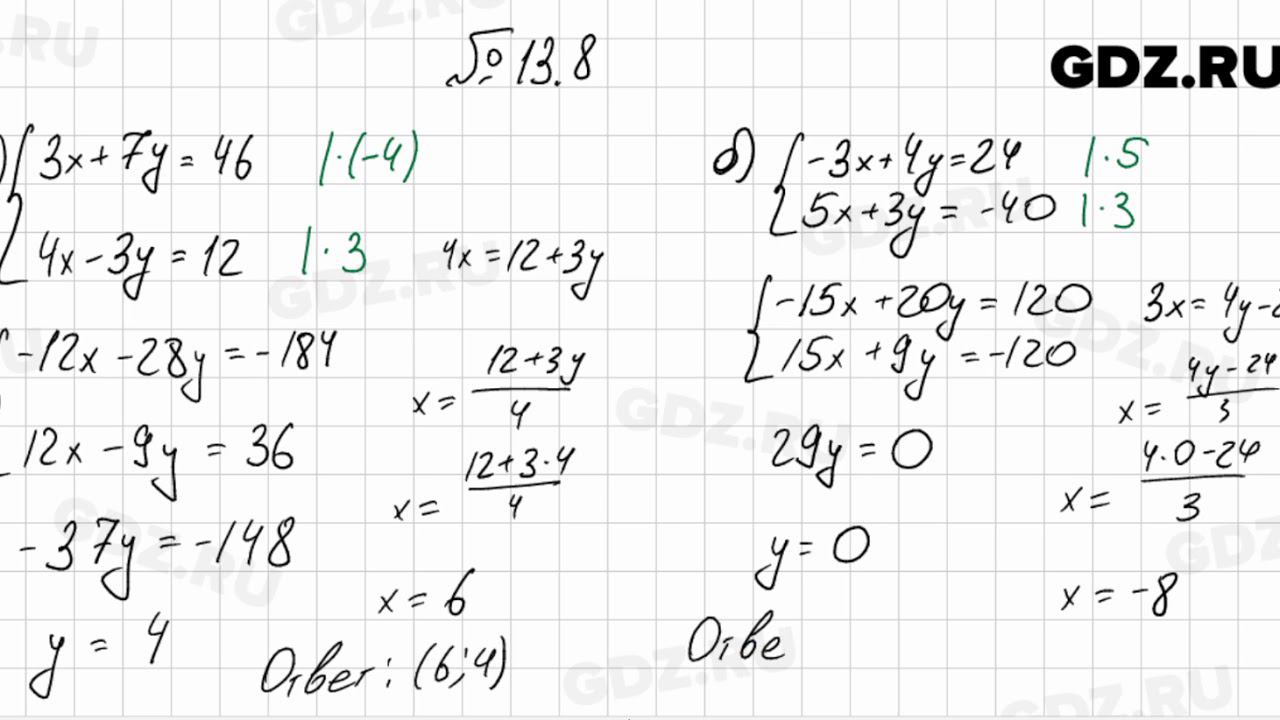 № 13.8
GDZ.RU
) { 3x + 7y = 46 | · (-4)
4x - 3y = 12 | · 3
4x = 12 + 3y
-12x - 28y = -184
12x - 9y = 36
-37y = -148
y = 4
x = (12 + 3y)/4
x = (12 + 3·4)/4
x = 6
Ответ: (6; 4)
б) { -3x + 4y = 24 | · 5
5x + 3y = -40 | · 3
{ -15x + 20y = 120
15x + 9y = -120
29y = 0
y = 0
3x = 4y - 2
x = (4y - 24)/3
x = (4·0 - 24)/3
x = -8
Отве